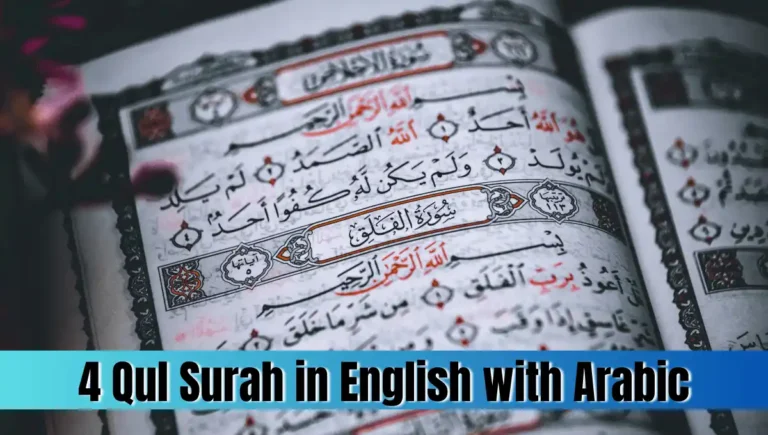 سُورَةُ الإِخْلَاصِ
بِسْمِ ٱللَّهِ ٱلرَّحْمَٰنِ ٱلرَّحِيمِ
هُوَ ٱللَّهُ أَحَدٌ ١ ٱللَّهُ ٱلصَّمَدُ ٢ لَمْ يَلِدْ
يُولَدْ ٣ وَلَمْ يَكُن لَّهُۥ كُفُوًا أَحَدٌ ٤
آياتها ٥ سُورَةُ الفَلَقِ ١١٣
بِسْمِ ٱللَّهِ ٱلرَّحْمَٰنِ ٱلرَّحِيمِ
أَعُوذُ بِرَبِّ ٱلْفَلَقِ ١ مِن شَرِّ مَا خَلَقَ
غَاسِقٍ إِذَا وَقَبَ
4 Qul Surah in English with Arabic